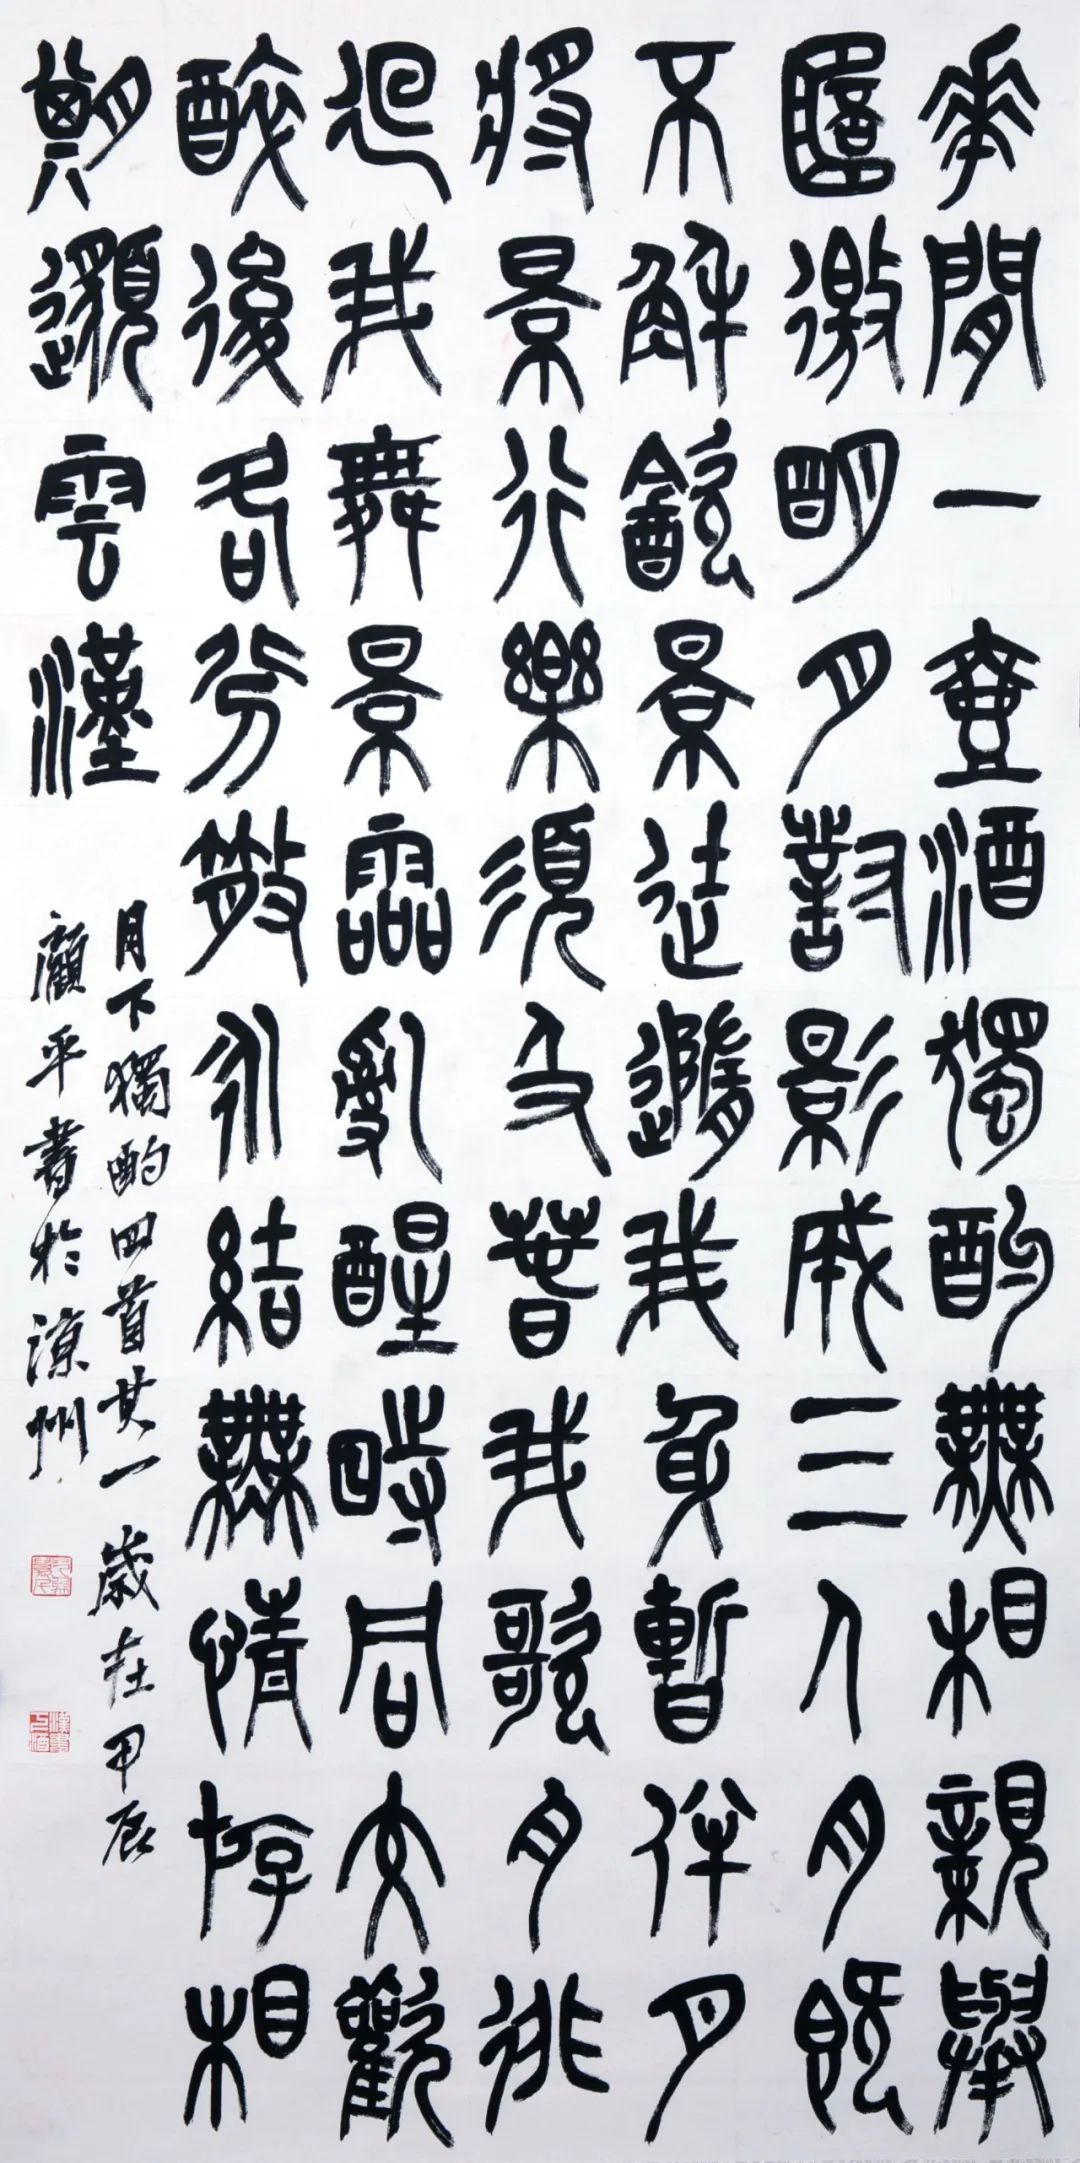 華間一壺酒獨酌無相親舉
杯邀明月對影成三人月既
不解飲景徒隨我身暫伴月
將景行樂須及春我歌月徘
徊我舞景零亂醒時同交歡
醉後各分散永結無情遊相
期邈雲漢
月下獨酌四首其一歲在甲辰
顧平書於涼州